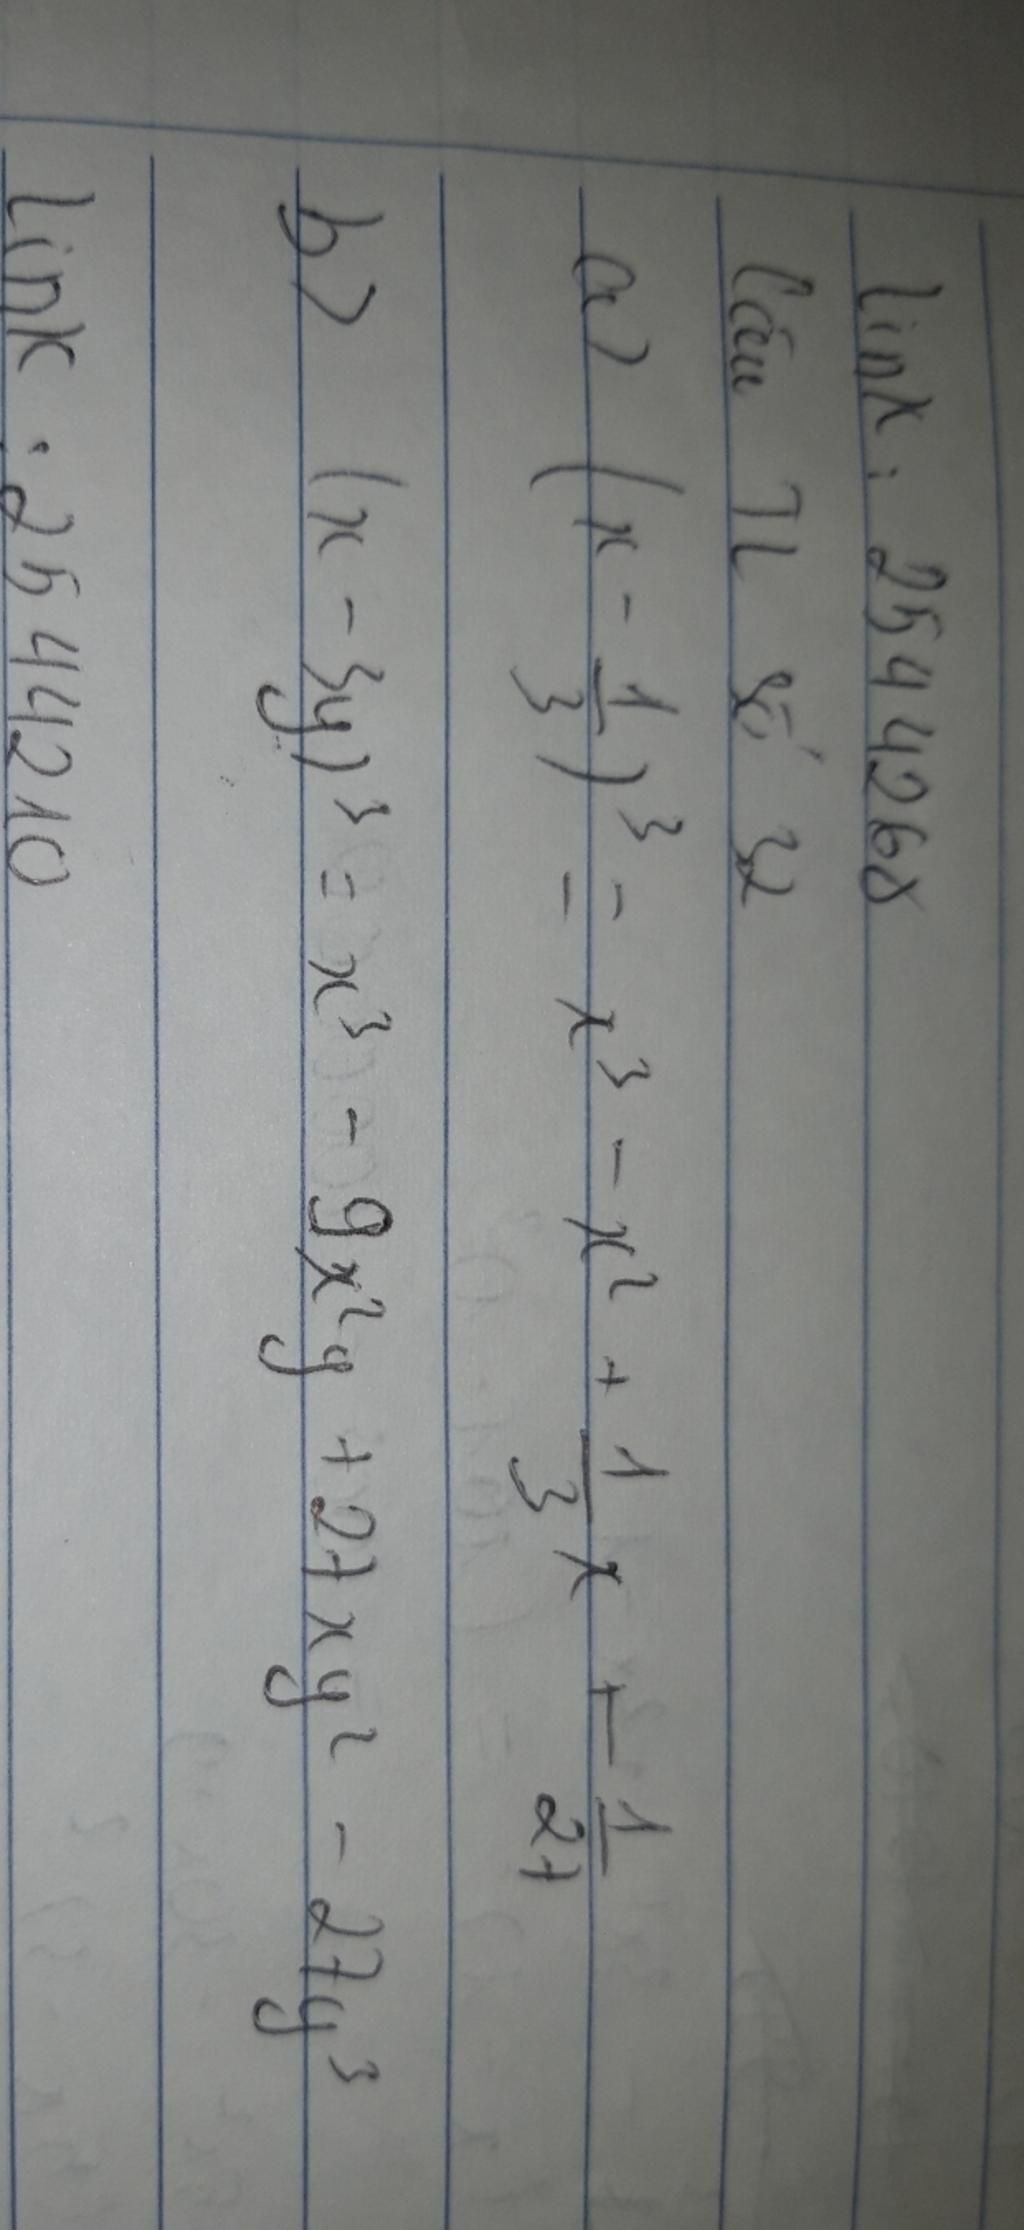 link: 2544268
Câu TL số 32
a) (x - 1/3)³ = x³ - x² + 1/3 x + - 1/27
b) (x - 3y)³ = x³ - 9x²y + 27xy² - 27y³
link: 2544210